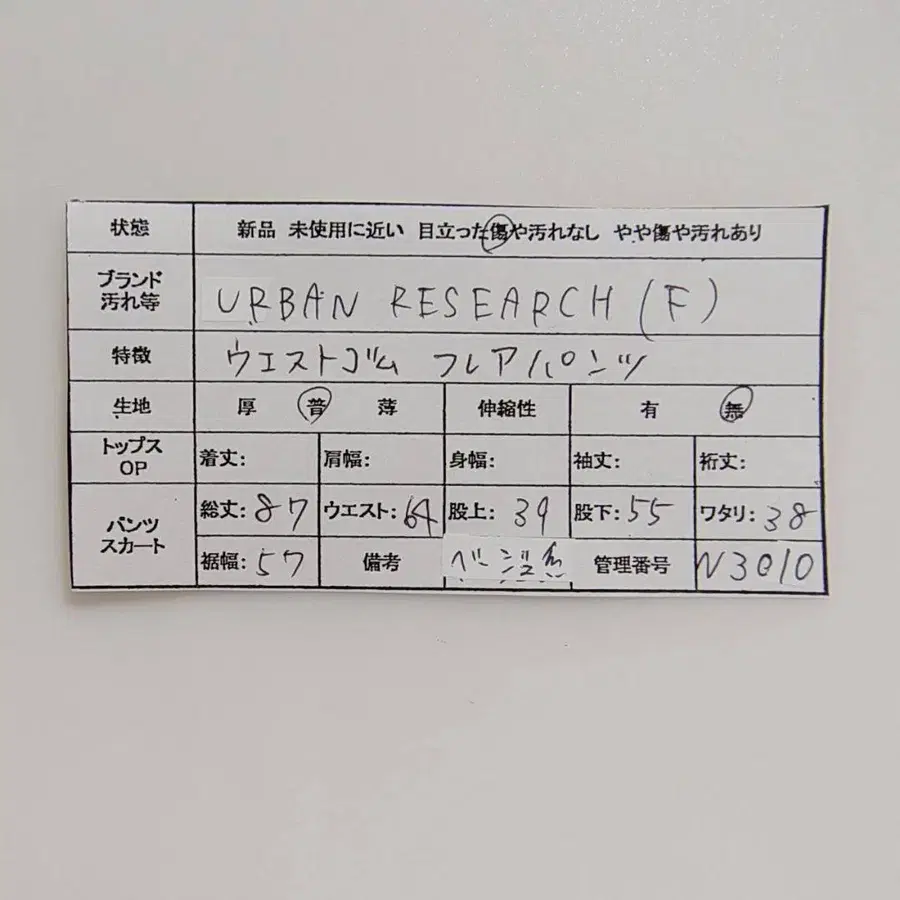 状態 新品 未使用に近い 目立った傷や汚れなし やや傷や汚れあり
ブランド
汚れ等 URBAN RESEARCH (F)
特徴 ウエストゴム フレアパンツ
生地 厚 普 薄 伸縮性 有 無
トップス
OP 着丈: 肩幅: 身幅: 袖丈: 裄丈:
パンツ
スカート 総丈:87 ウエスト:64 股上:39 股下:55 ワタリ:38
裾幅:57 備考 ベージュ色 管理番号 N3010